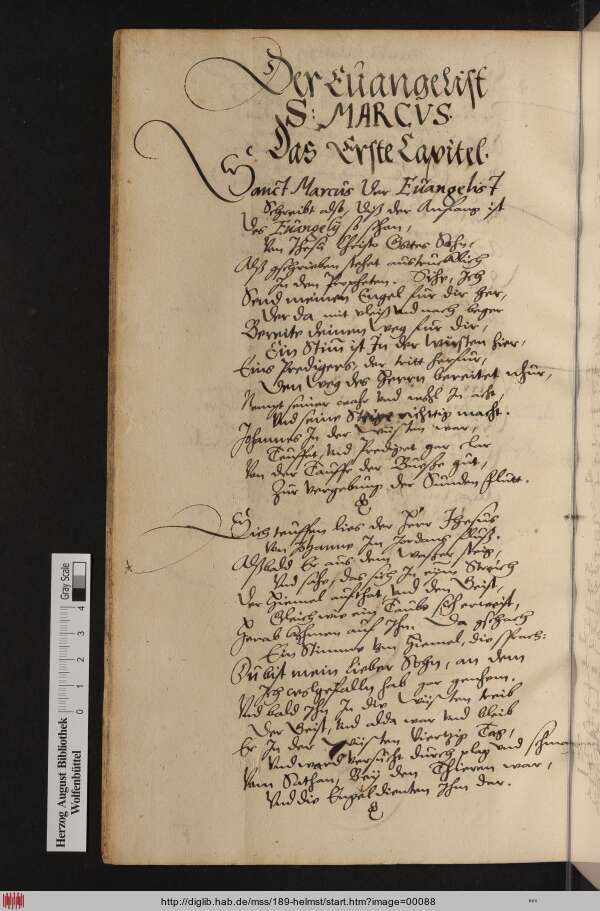 Der Euangelist
S: MARCVS.
Das Erste Capitel.
Sanct Marcus der Euangelist
Schreibt also, diß der Anfang ist
Des Euangely so schon,
Von Jhesu Christo Gottes Sohn,
Alß gschrieben stehet austrucklich
In den Propheten. Sihe, Ich
Send meinen Engel für dir her,
Der da mit vleiß vnd nach beger
Bereite deinen Weg für dir,
Ein Stim ist In der Wüsten hier,
Eins Predigers, der tritt herfür,
Den Weg des Herrn bereitet
Nempt seiner wahr vnd wohl In acht,
Vnd seine Steige richtig macht.
Johannes In der Wüsten war,
Teuffet, vnd Prediget gar clar
Von der Tauffe der Buesse gut,
Zur vergebung der Sunden flutt.
Sich teuffen lies der Herr Jhesus
Von Johanne Im Jordans fluß.
Alßbald Er aus dem Wasser steig,
Vnd sahe, das sich In
Der Himel aufthat, vnd den Geist,
Gleich wie ein Taube sich erweist,
Herab kohmen auf Ihn. Da gschach
Ein Stimme vom Himel, die sprach:
Du bist mein lieber Sohn, an dem
Ich wolgefalln hab gar genehm.
Vnd bald Ihn In die Wüsten treib
Der Geist, vnd alda war vnd bleib
Er In der Wüsten viertzig Tag,
Vnd ward versucht durch plag vnd
Vom Sathan, Bey den Thieren war,
Vnd die Engel dienten Ihm dar.
Herzog August Bibliothek
Wolfenbüttel
Gray Scale
0 1 2 3 4
http://diglib.hab.de/mss/189-helmst/start.htm?image=00088